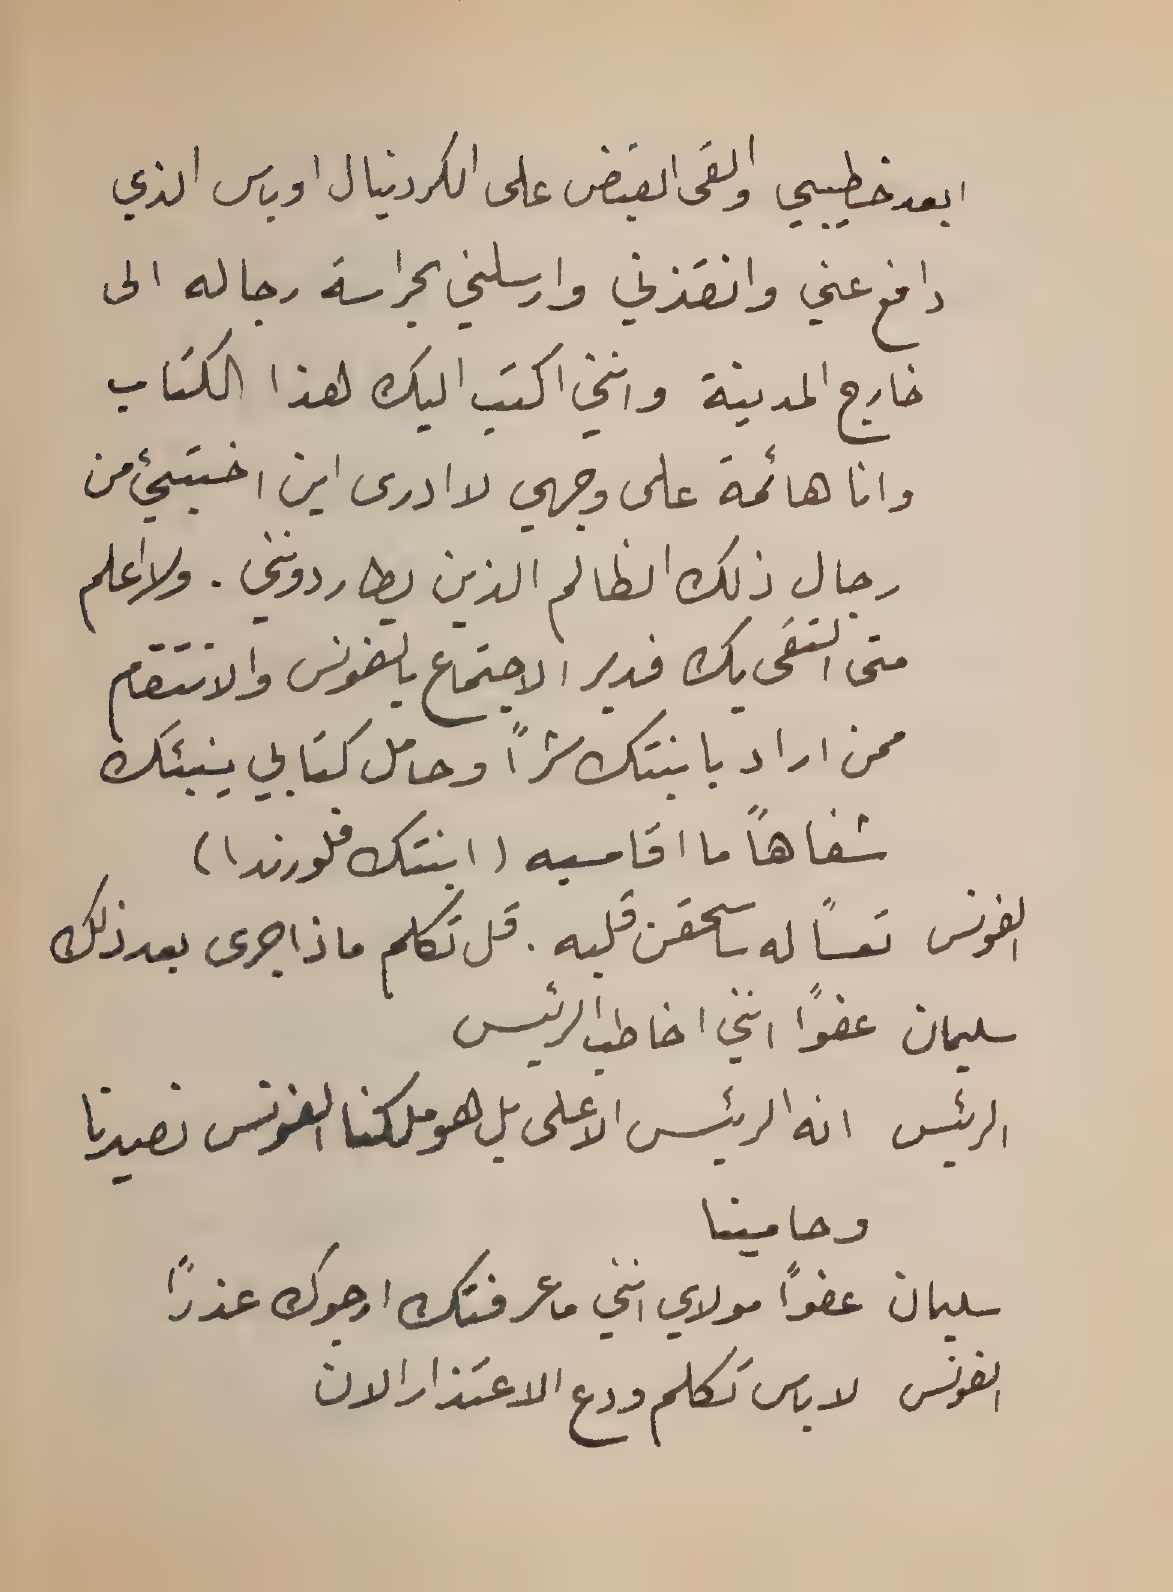 ابعد خطيبي والقى القبض على الكردينال اوباس الذي
دافع عني وانقذني وارسلني بحراسة رجاله الى
خارج المدينة وانني اكتب اليك لهذا الكتاب
وانا هائمة على وجهي لا ادرى اين اختبئ من
رجال ذلك الظالم الذين يطاردونني . ولا اعلم
متى التقى بك فدبر الاجتماع بالفونس والانتقام
ممن اراد بابنتك شراً وحامل كتابي ينبئك
شفاهاً ما اقاسيه (ابنتك فلورندا)
الفونس تعساً له سأسحقن قلبه . قل تكلم ماذا جرى بعد ذلك
سليمان عفواً انني اخاطب الرئيس
الرئيس انه الرئيس الاعلى بل هو ملكنا الفونس نصيرنا
وحامينا
سليمان عفواً مولاي انني ما عرفتك ارجوك عذراً
الفونس لا باس تكلم ودع الاعتذار الان